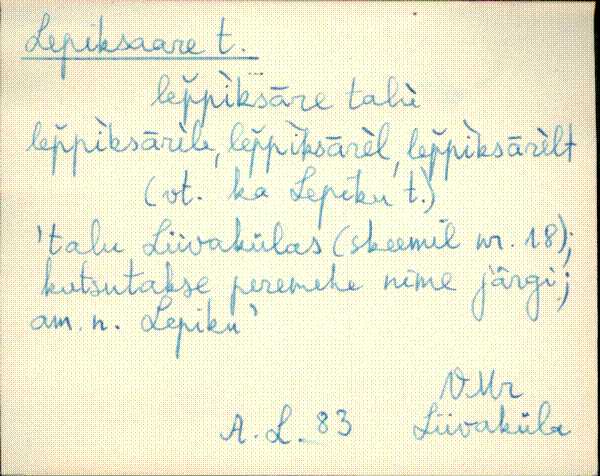 Lepiksaare t.
lep̆pìksāre talù
lep̆pìksārèle, lep̆pìksārèl, lep̆pìksārèlt
(vt. ka Lepiku t.)
'talu Liivakülas (skeemil nr. 18);
kutsutakse peremehe nime järgi;
am. n. Lepiku'
VMr
A. L. 83 Liivaküla